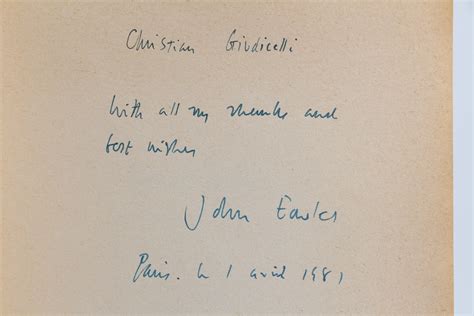 Christian Giudicelli
With all my thanks and
best wishes
John Fowles
Paris. le 1 avril 1981